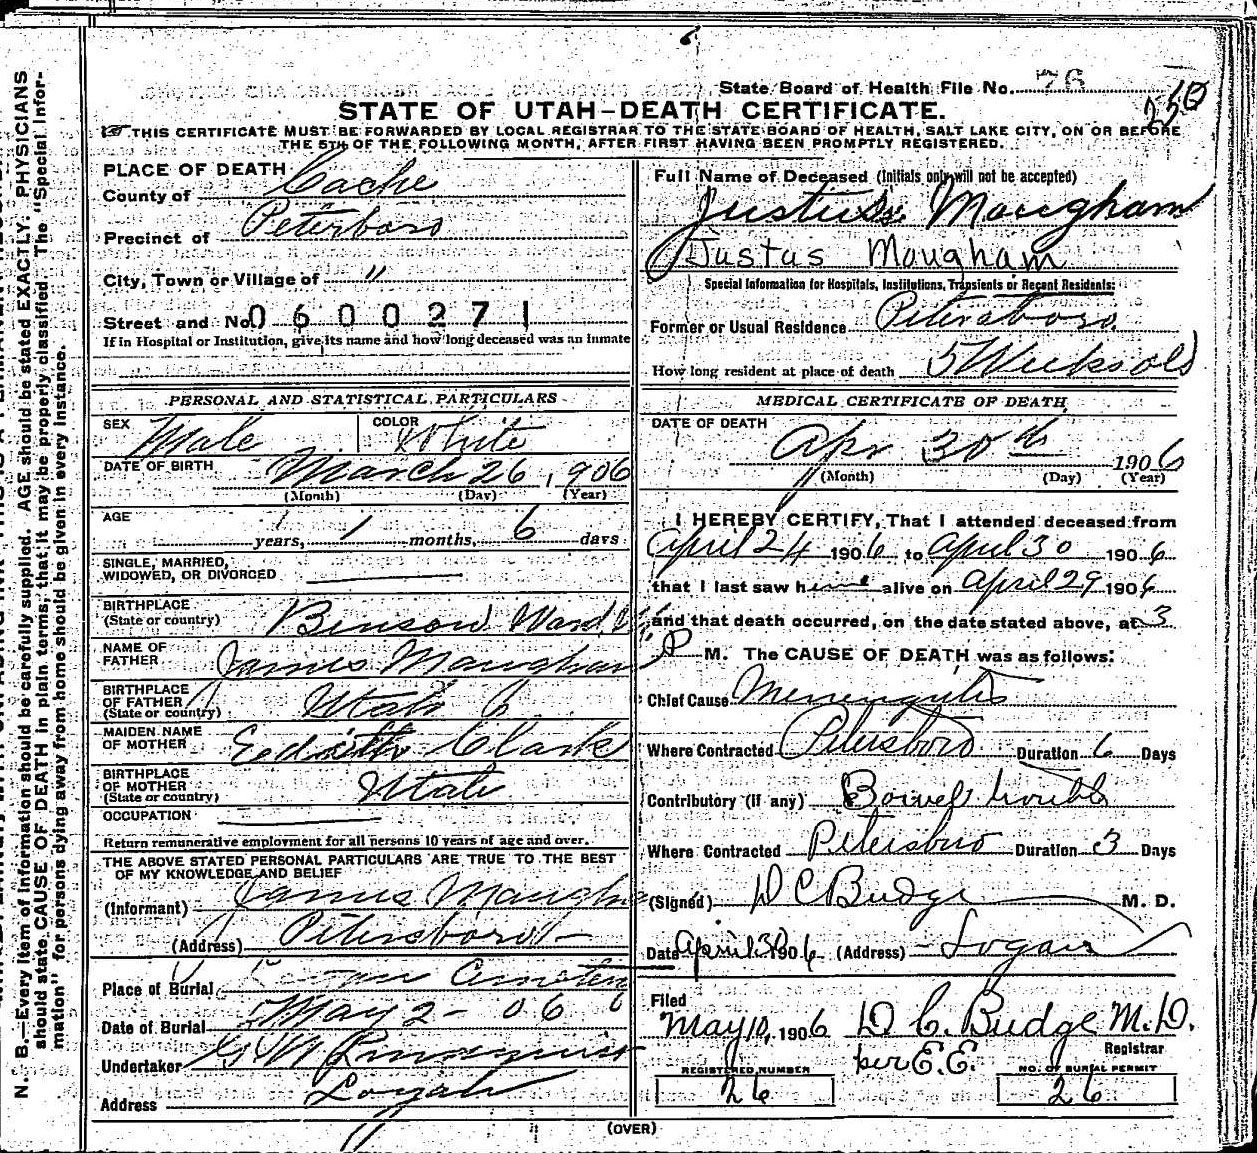 State Board of Health File No. 76
STATE OF UTAH—DEATH CERTIFICATE.
THIS CERTIFICATE MUST BE FORWARDED BY LOCAL REGISTRAR TO THE STATE BOARD OF HEALTH, SALT LAKE CITY, ON OR BEFORE
THE 5TH OF THE FOLLOWING MONTH, AFTER FIRST HAVING BEEN PROMPTLY REGISTERED.
PLACE OF DEATH
County of Cache
Precinct of Peterboro
City, Town or Village of "
Street and No. 0600271
If in Hospital or Institution, give its name and how long deceased was an inmate
PERSONAL AND STATISTICAL PARTICULARS
SEX Male COLOR White
DATE OF BIRTH March 26, 1906
(Month) (Day) (Year)
AGE years, 1 months, 6 days
SINGLE, MARRIED,
WIDOWED, OR DIVORCED
BIRTHPLACE
(State or country) Benson Ward
NAME OF
FATHER James Maughan
BIRTHPLACE
OF FATHER
(State or country) Utah
MAIDEN NAME
OF MOTHER Eedith Clark
BIRTHPLACE
OF MOTHER
(State or country) Utah
OCCUPATION
Return remunerative employment for all persons 10 years of age and over.
THE ABOVE STATED PERSONAL PARTICULARS ARE TRUE TO THE BEST
OF MY KNOWLEDGE AND BELIEF
(Informant) James Maugha
(Address) Petersboro
Place of Burial Cemetery
Date of Burial May 2 - 06
Undertaker
Address Logan
Full Name of Deceased (Initials only will not be accepted)
Justus Maugham
Justus Maugham
Special Information for Hospitals, Institutions, Transients or Recent Residents:
Former or Usual Residence Petersboro
How long resident at place of death 5 Weeks old
MEDICAL CERTIFICATE OF DEATH
DATE OF DEATH
Apr 30th 1906
(Month) (Day) (Year)
I HEREBY CERTIFY, That I attended deceased from
April 24 1906 to April 30 1906
that I last saw him alive on April 29 1906
and that death occurred, on the date stated above, at 3
P M. The CAUSE OF DEATH was as follows:
Chief Cause Menengitis
Where Contracted Petersboro Duration 6 Days
Contributory (if any) Bowel trouble
Where Contracted Petersboro Duration 3 Days
(Signed) D C Budge M. D.
Date April 30 1906 (Address) Logan
Filed
May 10, 1906 D. C. Budge M.D.
per E.E. Registrar
REGISTERED NUMBER NO. OF BURIAL PERMIT
26 26
(OVER)
N. B.—Every item of information should be carefully supplied. AGE should be stated EXACTLY. PHYSICIANS
should state CAUSE OF DEATH in plain terms, that it may be properly classified. The "Special Infor-
mation" for persons dying away from home should be given in every instance.